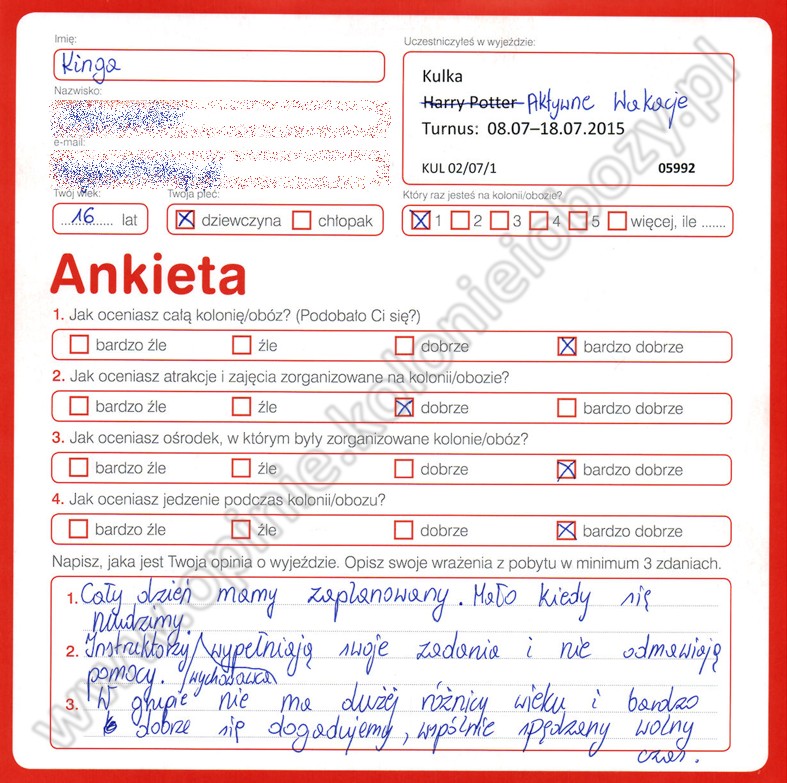 Imię:
Kinga
Nazwisko:
e-mail:
Twój wiek:
16 lat
Twoja płeć:
dziewczyna chłopak
Uczestniczyłeś w wyjeździe:
Kulka
Harry Potter Aktywne Wakacje
Turnus: 08.07–18.07.2015
KUL 02/07/1 05992
Który raz jesteś na kolonii/obozie?
1 2 3 4 5 więcej, ile .......
Ankieta
1. Jak oceniasz całą kolonię/obóz? (Podobało Ci się?)
bardzo źle źle dobrze bardzo dobrze
2. Jak oceniasz atrakcje i zajęcia zorganizowane na kolonii/obozie?
bardzo źle źle dobrze bardzo dobrze
3. Jak oceniasz ośrodek, w którym były zorganizowane kolonie/obóz?
bardzo źle źle dobrze bardzo dobrze
4. Jak oceniasz jedzenie podczas kolonii/obozu?
bardzo źle źle dobrze bardzo dobrze
Napisz, jaka jest Twoja opinia o wyjeździe. Opisz swoje wrażenia z pobytu w minimum 3 zdaniach.
1. Cały dzień mamy zaplanowany. Mało kiedy się
nudzimy.
2. Instruktorzy/ wypełniają swoje zadania i nie odmawiają
pomocy. wychowawca
3. W grupie nie ma dużej różnicy wieku i bardzo
dobrze się dogadujemy, wspólnie spędzany wolny
czas.
www.opinie.kolonieiobozy.pl